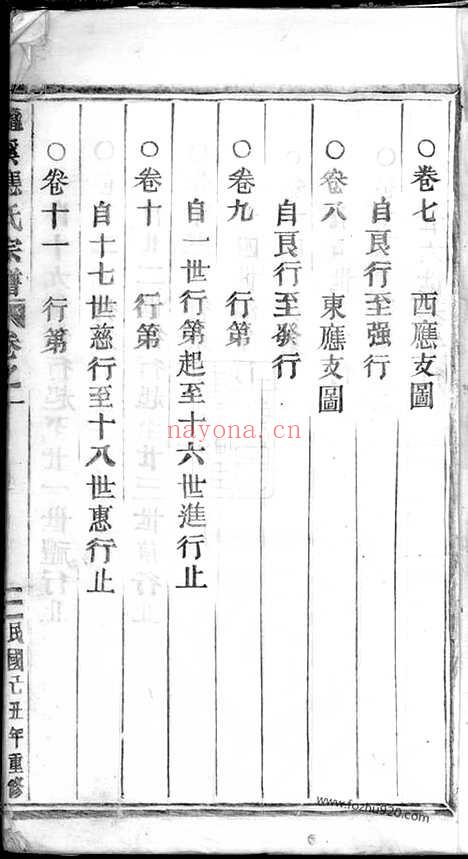 〇卷七 西應支圖
自良行至强行
〇卷八 東應支圖
自良行至發行
〇卷九 行第
自一世行第起至十六世進行止
〇卷十 行第
自十七世慈行至十八世惠行止
〇卷十一 行第
溪應氏宗譜 卷之一 二 民國己丑年重修
nayona.cn
www.fozhu920.com